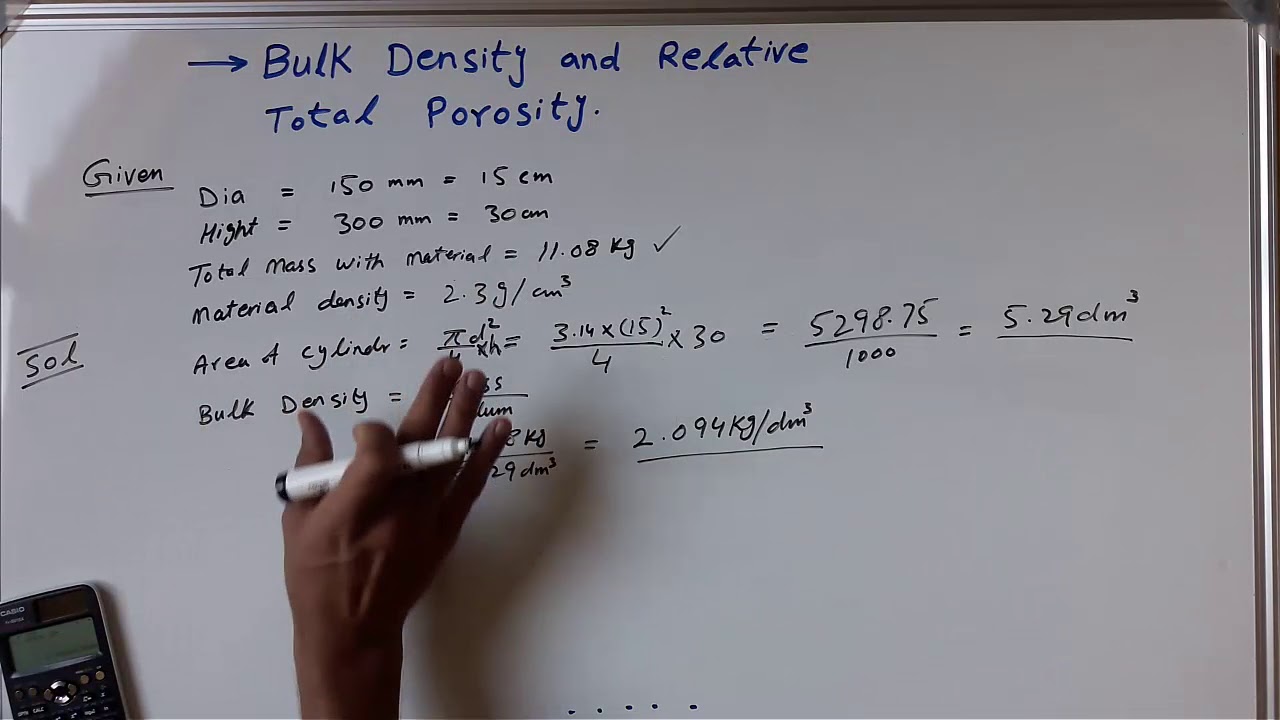 → Bulk Density and Relative
Total Porosity.
Given
Dia = 150 mm = 15 cm
Hight = 300 mm = 30cm
Total Mass with material = 11.08 Kg ✓
Material density = 2.3 g/cm³
Sol
Area of cylindr = πd²/4 xh = 3.14×(15)²/4 × 30 = 5298.75/1000 = 5.29dm³
Bulk Density =
8Kg / 29 dm³ = 2.094Kg/dm³
CASIO